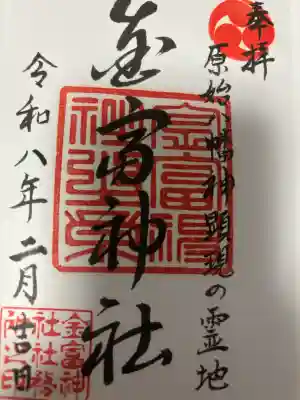 奉拝
原始八幡神顕現の霊地
金富神社
令和八年二月吉日
金富神
社社務
所之印